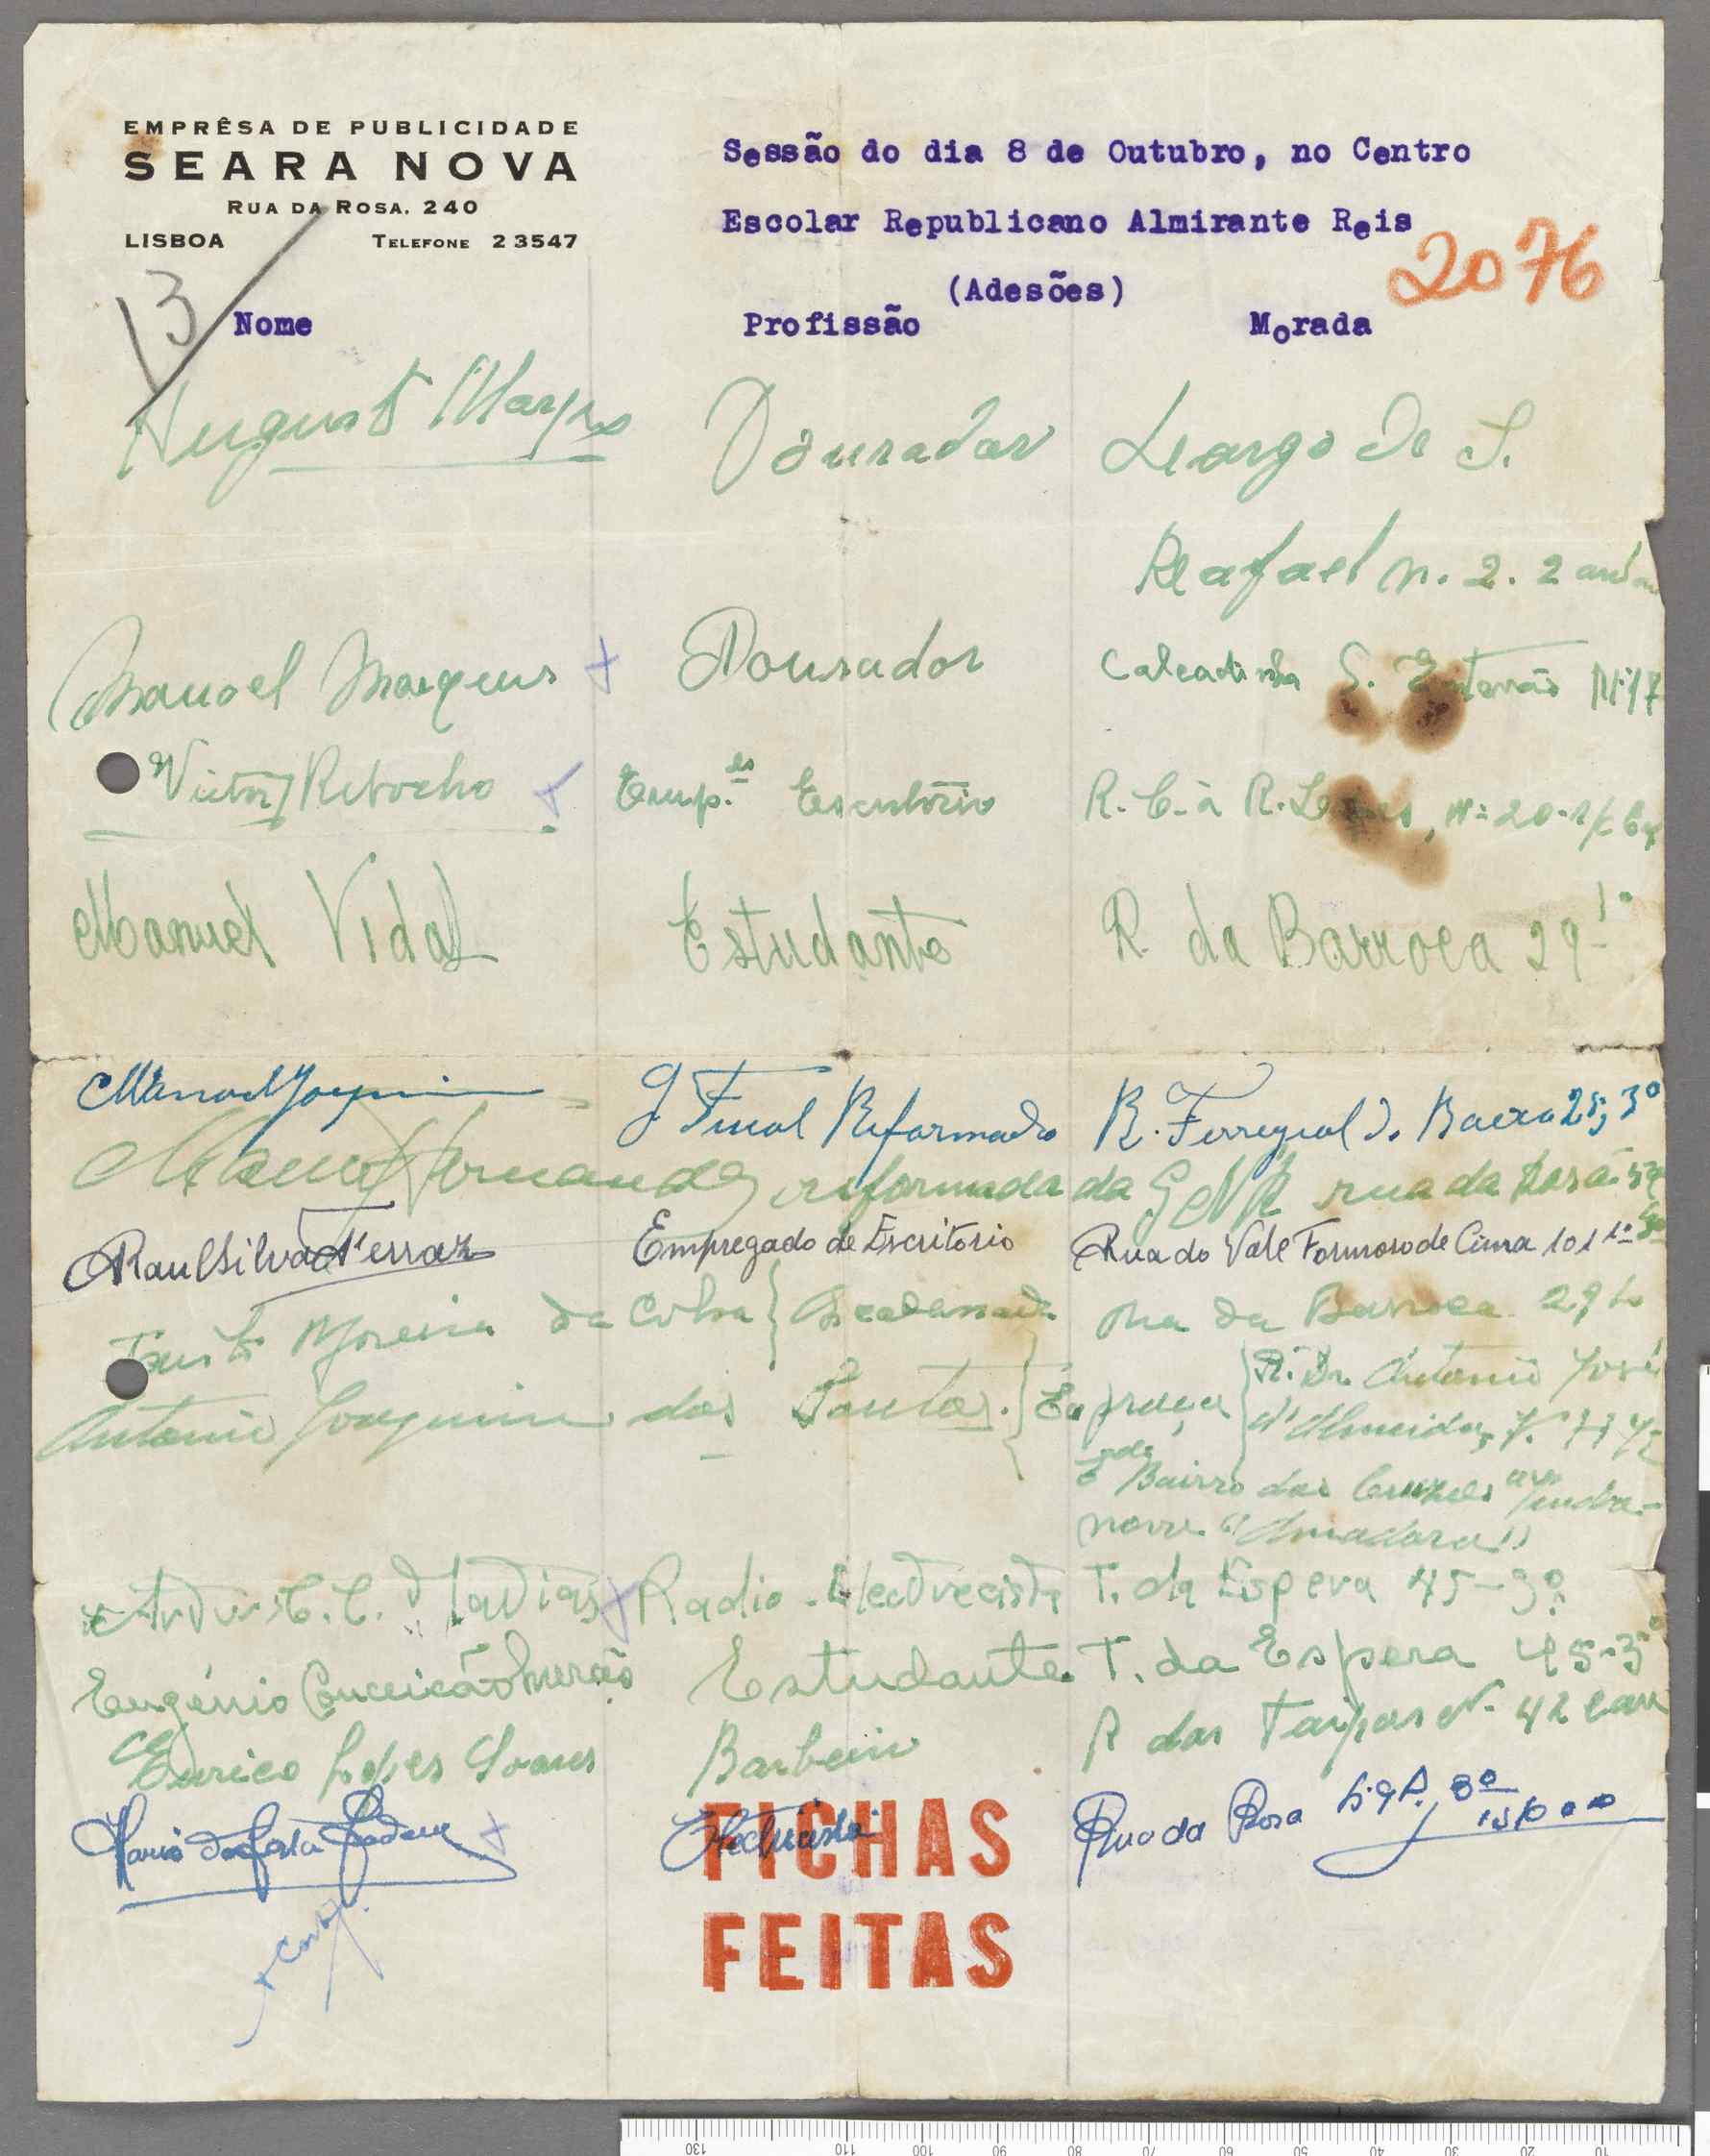 EMPRÊSA DE PUBLICIDADE
SEARA NOVA
RUA DA ROSA, 240
LISBOA TELEFONE 2 3547
Sessão do dia 8 de Outubro, no Centro
Escolar Republicano Almirante Reis
(Adesões)
2076
13
Nome Profissão Morada
Augusto Marques Dourador Largo de S.
Rafael n. 2. 2 andar
Manoel Marques Dourador Calcadinha S. Estevão Nº 17
Victor Retocho Emp. Escritório R. C. à R. Nº 20
Manuel Vidal Estudante R da Barroca 29 1º
Manoel Joaquim G. Fiscal Reformado R. Ferregial d. Baixo 25, 3º
Fernandes reformado da GNR rua da Rosa
Raul Silva Ferraz Empregado de Escritorio Rua do Vale Formoso de Cima 101 1º
Moreira da Rua da Barroca 29
Antonio Joaquim dos Santos R. Dr. Antonio José
d'Almeida,
Bairro das Cruzes
nova "Amadora"
Artur C. C. Matias Radio-Electrecista T. da Espera 45-3º
Eugénio Conceição Estudante T. da Espera 45-3º
Eurico Lopes Soares Barbeiro R das Taipas Nº 42
Mario da Costa Electricista Rua da Rosa 3º
FICHAS
FEITAS
130 110 100 90 80 70 60 50 40 30 20 10